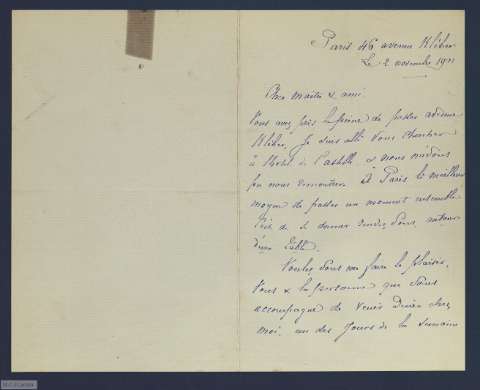 Paris 46 avenue Kléber
Le 2 novembre 1911
Cher maître & ami.
Vous avez pris la peine de passer avenue
Kléber, je suis allé vous chercher
à l'hôtel de Castille & nous n'avons
pu nous rencontrer. À Paris le meilleur
moyen de passer un moment ensemble
c'est de se donner rendez vous autour
d'une table.
Voulez vous me faire le plaisir,
vous & la personne que vous
accompagne de venir diner chez
moi, un des jours de la semaine